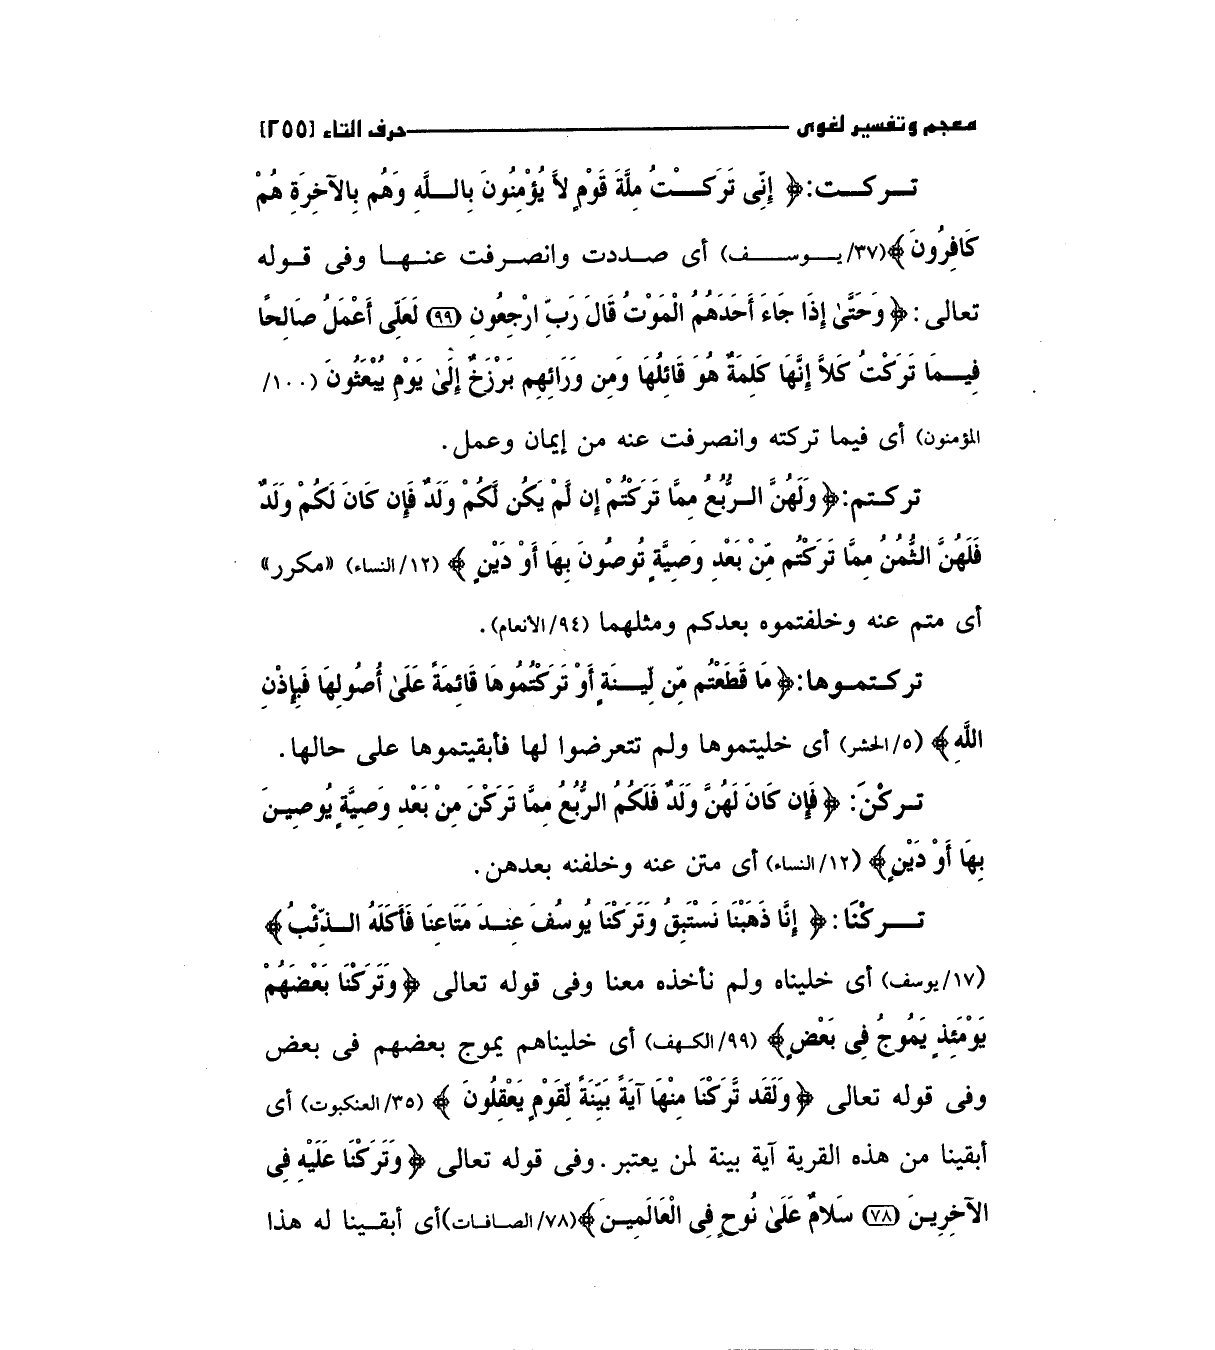 معجم وتفسير لغوى ــــــــ حرف التاء [٢٥٥]
تركت: ﴿ إِنِّى تَرَكْتُ مِلَّةَ قَوْمٍ لاَّ يُؤْمِنُونَ بِاللَّهِ وَهُم بِالآخِرَةِ هُمْ
كَافِرُونَ ﴾(٣٧/يوسف) أى صددت وانصرفت عنها وفى قوله
تعالى: ﴿ وَحَتَّىٰ إِذَا جَاءَ أَحَدَهُمُ الْمَوْتُ قَالَ رَبِّ ارْجِعُونِ (٩٩) لَعَلِّى أَعْمَلُ صَالِحًا
فِيمَا تَرَكْتُ كَلاَّ إِنَّهَا كَلِمَةٌ هُوَ قَائِلُهَا وَمِن وَرَائِهِم بَرْزَخٌ إِلَىٰ يَوْمِ يُبْعَثُونَ (١٠٠/
المؤمنون) أى فيما تركته وانصرفت عنه من إيمان وعمل.
تركتم: ﴿ وَلَهُنَّ الرُّبُعُ مِمَّا تَرَكْتُمْ إِن لَّمْ يَكُن لَّكُمْ وَلَدٌ فَإِن كَانَ لَكُمْ وَلَدٌ
فَلَهُنَّ الثُّمُنُ مِمَّا تَرَكْتُم مِّنْ بَعْدِ وَصِيَّةٍ تُوصُونَ بِهَا أَوْ دَيْنٍ ﴾ (١٢/النساء) «مكرر»
أى متم عنه وخلفتموه بعدكم ومثلهما (٩٤/الأنعام).
تركتموها: ﴿ مَا قَطَعْتُم مِّن لِّينَةٍ أَوْ تَرَكْتُمُوهَا قَائِمَةً عَلَىٰ أُصُولِهَا فَبِإِذْنِ
اللَّهِ ﴾ (٥/الحشر) أى خليتموها ولم تتعرضوا لها فأبقيتموها على حالها.
تركْنَ: ﴿ فَإِن كَانَ لَهُنَّ وَلَدٌ فَلَكُمُ الرُّبُعُ مِمَّا تَرَكْنَ مِنْ بَعْدِ وَصِيَّةٍ يُوصِينَ
بِهَا أَوْ دَيْنٍ ﴾ (١٢/النساء) أى متن عنه وخلفنه بعدهن.
تركْنَا: ﴿ إِنَّا ذَهَبْنَا نَسْتَبِقُ وَتَرَكْنَا يُوسُفَ عِندَ مَتَاعِنَا فَأَكَلَهُ الذِّئْبُ ﴾
(١٧/يوسف) أى خليناه ولم نأخذه معنا وفى قوله تعالى ﴿ وَتَرَكْنَا بَعْضَهُمْ
يَوْمَئِذٍ يَمُوجُ فِى بَعْضٍ ﴾ (٩٩/الكهف) أى خليناهم يموج بعضهم فى بعض
وفى قوله تعالى ﴿ وَلَقَد تَّرَكْنَا مِنْهَا آيَةً بَيِّنَةً لِّقَوْمٍ يَعْقِلُونَ ﴾ (٣٥/العنكبوت) أى
أبقينا من هذه القرية آية بينة لمن يعتبر. وفى قوله تعالى ﴿ وَتَرَكْنَا عَلَيْهِ فِى
الآخِرِينَ (٧٨) سَلامٌ عَلَىٰ نُوحٍ فِى الْعَالَمِينَ ﴾(٧٨/الصافات)أى أبقينا له هذا